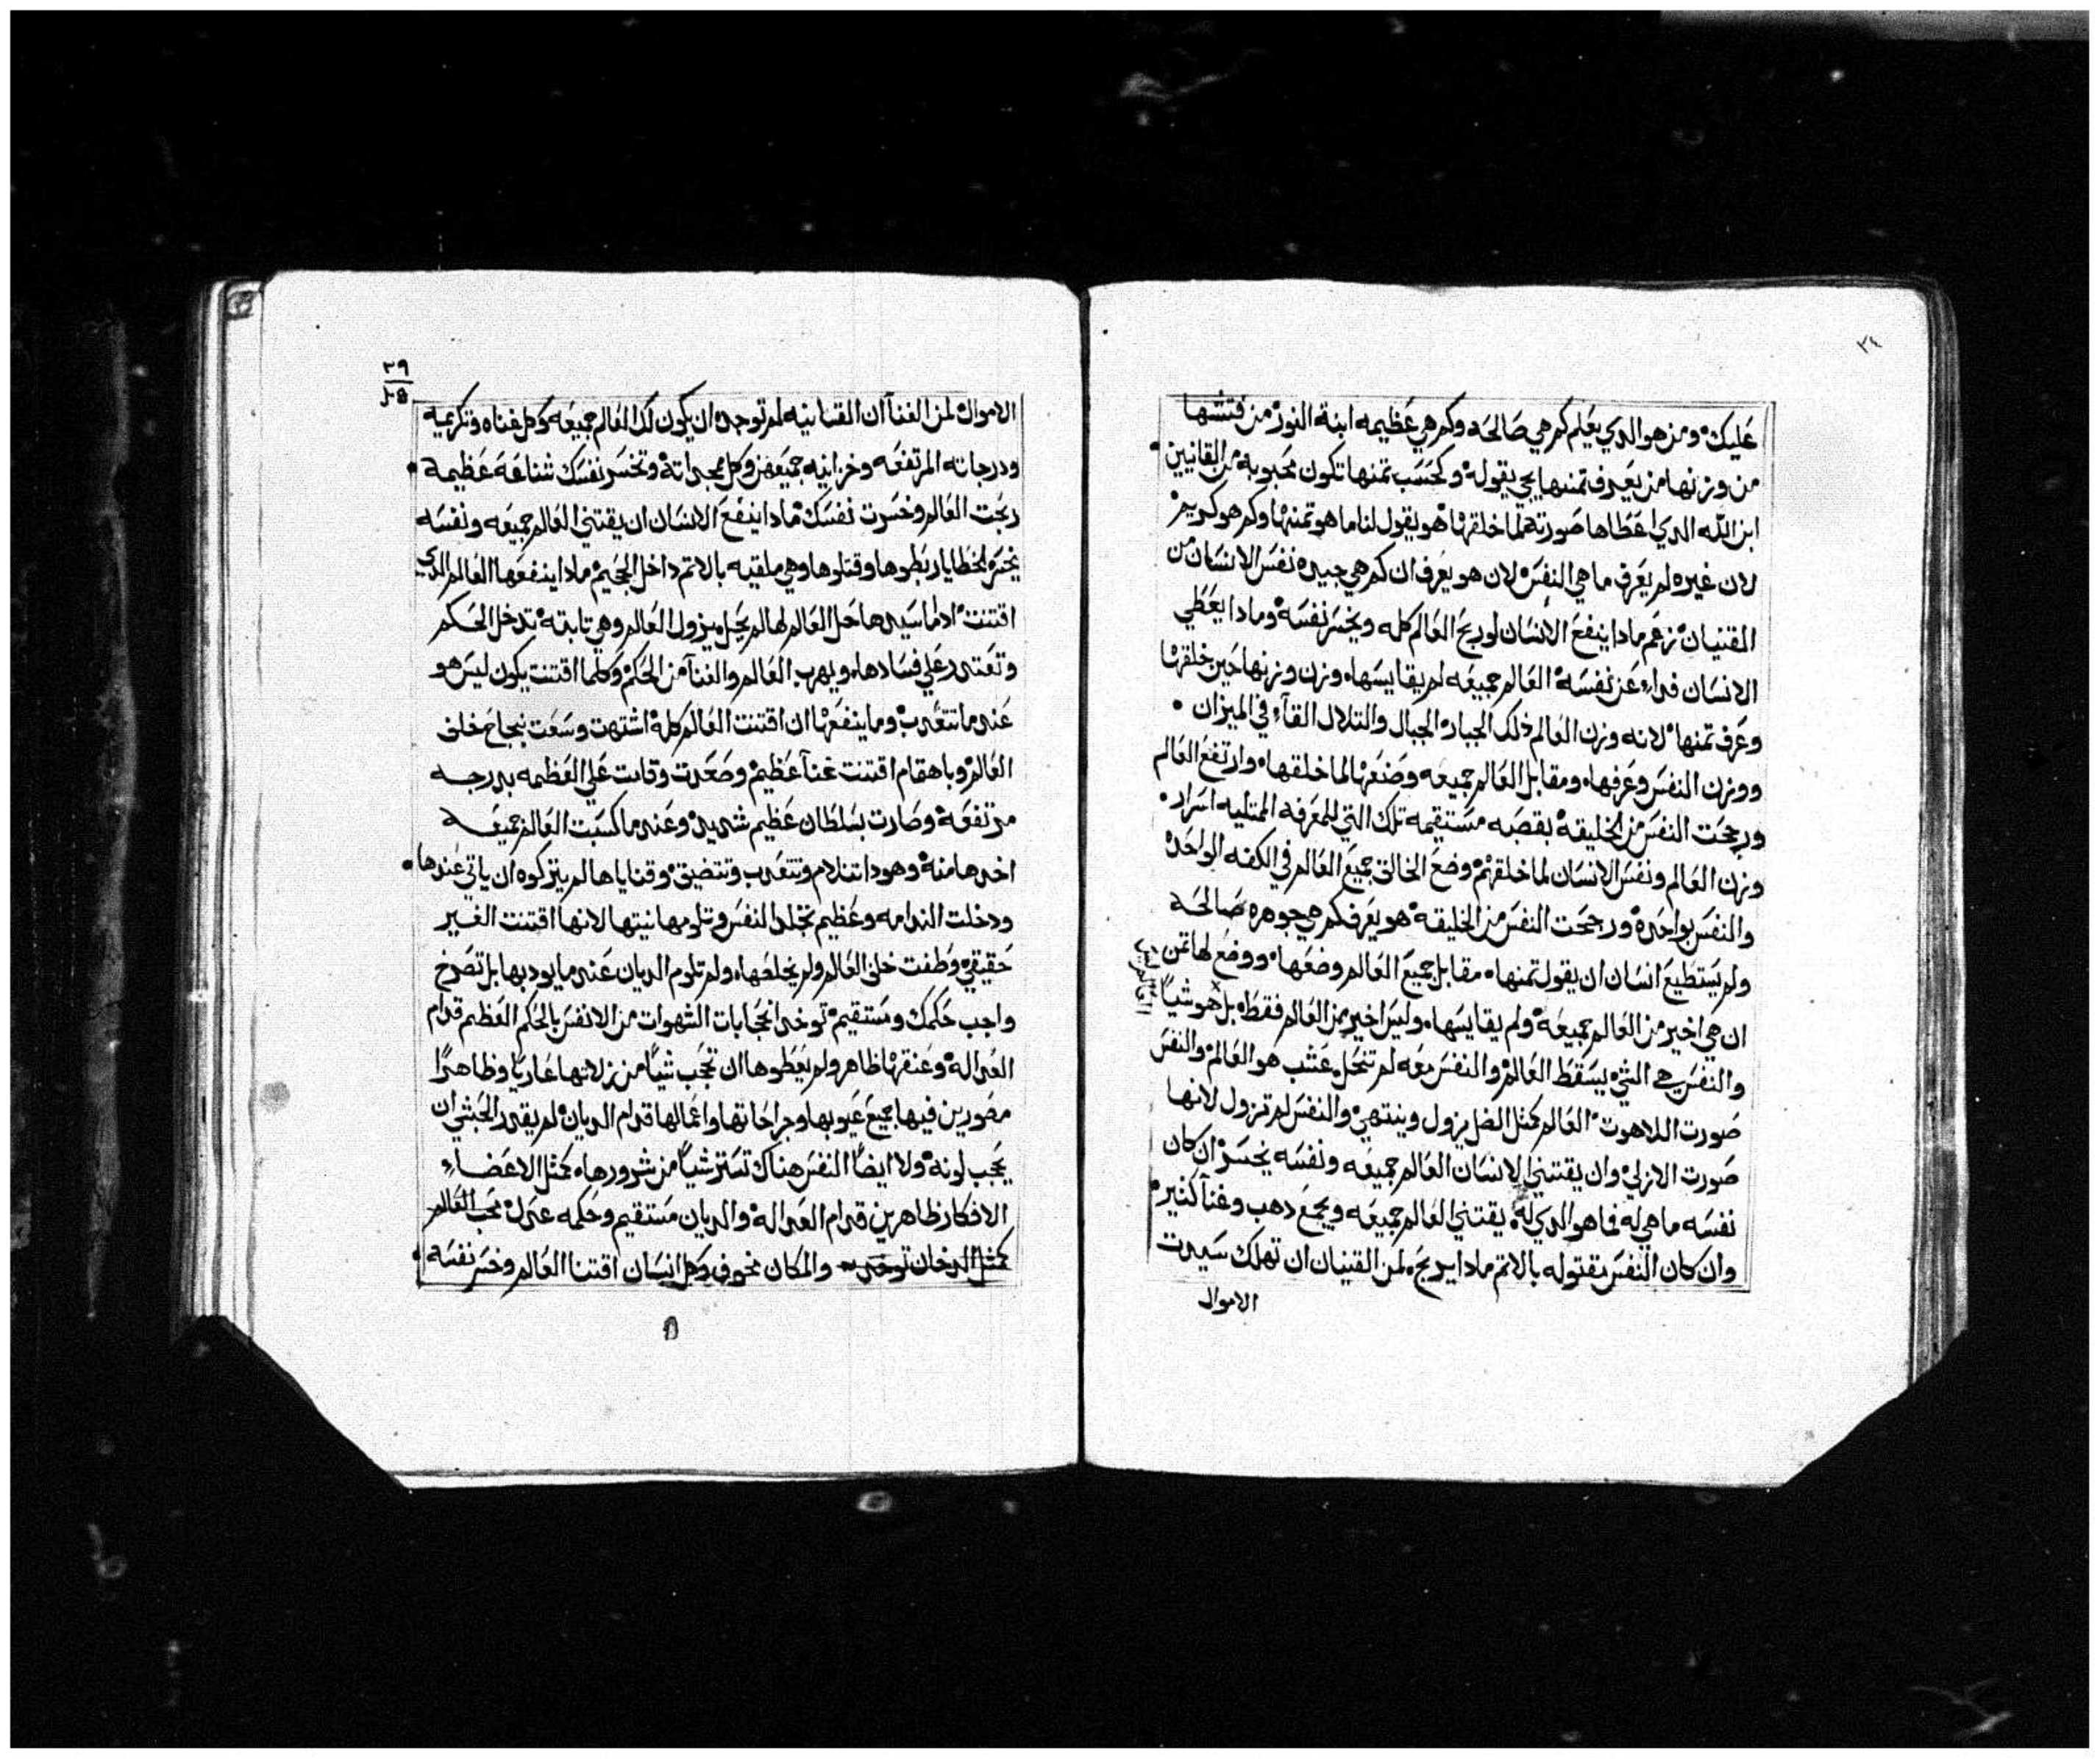 ٣٤
عليك ومن هو الدي يعلم كم هي صالحه وكم هي عظيمه ابنة النور من فتشها
من وزنها من يعرف تمنها يجي يقوله وكحسب تمنها تكون محبوبه من القانيين
ابن الله الدي اعطاها صورته لما خلقها هو يقول لنا ما هو تمنها وكم هو كريم
لان غيره لم يعرف ما هي النفس لان هو يعرف ان كم هي جيده نفس الانسان من
المقنيان نزعم مادا ينفع الانسان لو ربح العالم كله ويخسر نفسه ومادا يعطي
الانسان فداء عن نفسه العالم جميعه لم يقايسها وزن وزنها حين خلقها
وعرف تمنها لانه وزن العالم دلك الجبار الجبال والتلال القاء في الميزان
ووزن النفس وعرفها ومقابل العالم جميعه وضعها لما خلقها وارتفع العالم
ورجحت النفس من الخليقه بقصبه مستقيمه تلك التي للمعرفه الممتليه اسرار
وزن العالم ونفس الانسان لما خلقهم وضع الخالق جميع العالم في الكفه الواحده
والنفس بواحده ورجحت النفس من الخليقه هو يعرف كم هي جوهره صالحه
ولم يستطيع انسان ان يقول تمنها مقابل جميع العالم وضعها ووضع لها تمن
ان هي اخير من العالم جميعه ولم يقايسها وليس اخير من العالم فقط بل هو شياً
والنفس هي الشي يسقط العالم والنفس معه لم تنحل عشب هو العالم والنفس
صورت اللاهوت العالم كمثل الضل يزول وينتهي والنفس لم تزول لانها
صورت الازلي وان يقتني الانسان العالم جميعه ونفسه يخسر ان كان
نفسه ما هي له فما هو الدي له يقتني العالم جميعه ويجمع دهب وغنآ كتير
وان كان النفس مقتوله بالاتم مادا يربح لمن القنيان ان تهلك سيدت
الاموال
٢٩
الاموال لمن الغنآ ان القنانيه لم توجد ان يكون لك العالم جميعه وكل غناه وتكريمه
ودرجاته المرتفعه وخزاينه جميعهن وكل مجداته وتخسر نفسك شناعة عظيمة
ربحت العالم وخسرت نفسك مادا ينفع الانسان ان يقتني العالم جميعه ونفسه
يخسر الخطايا ربطوها وقتلوها وهي ملقيه بالاتم داخل الجحيم مادا ينفعها العالم الدي
اقتنت ادا ما سيدها حل العالم لها لم يحل يزول العالم وهي تابته تدخل الحكم
وتعتمد علي فسادها ويهرب العالم والغنآ من الحكم وكلما اقتنت يكون ليس هو
عند ما تتعدب وما ينفعها ان اقتنت العالم كله اشتهت وسعت بنجاح خلف
العالم وباهتمام اقتنت غنآ عظيم وصعدت وقامت علي العظمه بدرجه
مرتفعه وصارت بسلطان عظيم شديد وعند ما كسبت العالم جميعه
اخدها منه وهودا تتلام وتتعدب وتتضيق وقناياها لم يتركوه ان ياتي عندها
ودخلت الندامه وعظيم تخلد النفس وتلومها نيتها لانها اقتنت الغير
حقيقي وطفت خلف العالم ولم يخلصها ولم تلوم الديان عند ما يودبها بل تصرخ
واجب حكمك ومستقيم توخد انحجابات الشهوات من الانفس بالحكم العظيم قدام
العداله وعنقها ظاهر ولم يعطوها ان تحجب شياً من زلاتها عارياً وظاهراً
مصورين فيها جميع عيوبها وجراحاتها واعمالها قدام الديان لم يقدر الحبشي ان
يحجب لونه ولا ايضاً النفس هناك تستر شياً من شرورها كمثل الاعضاء
الافكار ظاهرين قدام العداله والديان مستقيم وحكمه عدل محب العالم
كمثل الدخان توخد والمكان مخوف وكل انسان اقتنا العالم وخسر نفسه